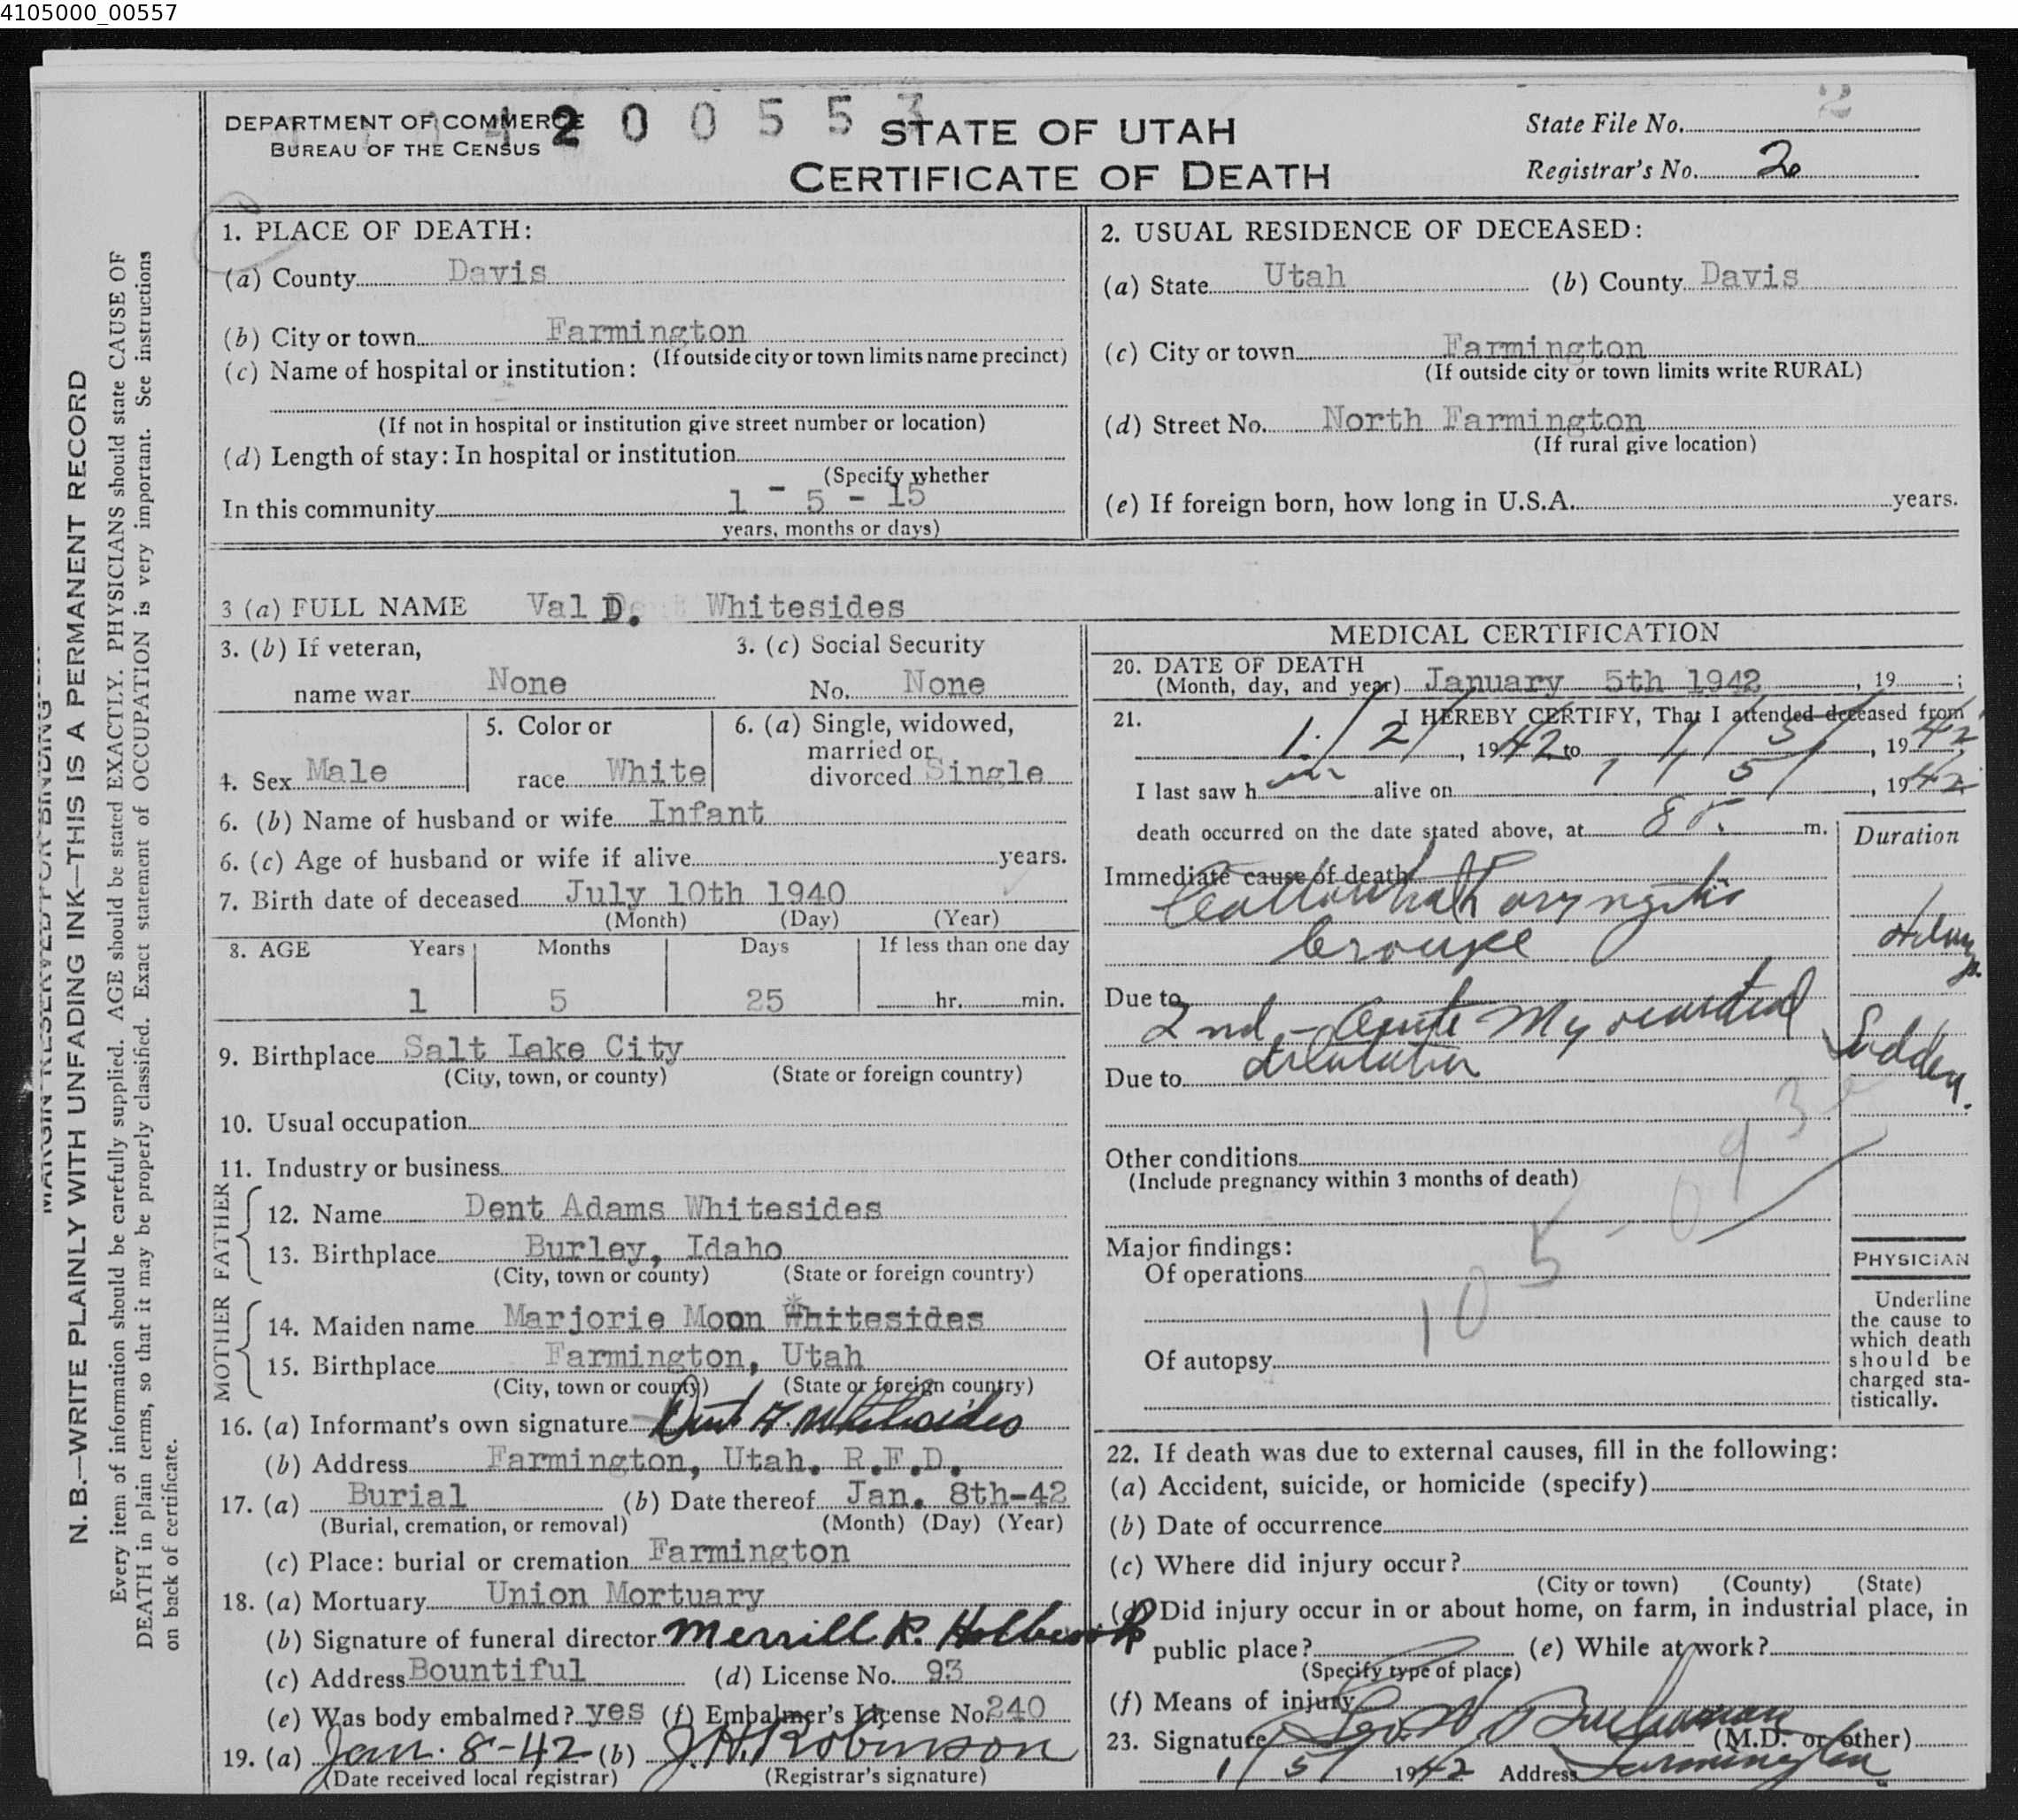 4105000_00557
DEPARTMENT OF COMMERCE
BUREAU OF THE CENSUS
2 0 0 5 5 3
STATE OF UTAH
CERTIFICATE OF DEATH
State File No. 2
Registrar's No. 2
1. PLACE OF DEATH:
(a) County Davis
(b) City or town Farmington
(If outside city or town limits name precinct)
(c) Name of hospital or institution:
(If not in hospital or institution give street number or location)
(d) Length of stay: In hospital or institution
(Specify whether
In this community 1 - 5 - 15
years, months or days)
2. USUAL RESIDENCE OF DECEASED:
(a) State Utah (b) County Davis
(c) City or town Farmington
(If outside city or town limits write RURAL)
(d) Street No. North Farmington
(If rural give location)
(e) If foreign born, how long in U.S.A. years.
3 (a) FULL NAME Val D. Whitesides
3. (b) If veteran,
name war None
3. (c) Social Security
No. None
4. Sex Male
5. Color or
race White
6. (a) Single, widowed,
married or
divorced Single
6. (b) Name of husband or wife Infant
6. (c) Age of husband or wife if alive years.
7. Birth date of deceased July 10th 1940
(Month) (Day) (Year)
8. AGE Years Months Days If less than one day
1 5 25 hr. min.
9. Birthplace Salt Lake City
(City, town, or county) (State or foreign country)
10. Usual occupation
11. Industry or business
FATHER
12. Name Dent Adams Whitesides
13. Birthplace Burley, Idaho
(City, town or county) (State or foreign country)
MOTHER
14. Maiden name Marjorie Moon Whitesides
15. Birthplace Farmington, Utah
(City, town or county) (State or foreign country)
16. (a) Informant's own signature Dent A. Whitesides
(b) Address Farmington, Utah. R.F.D.
17. (a) Burial (b) Date thereof Jan. 8th-42
(Burial, cremation, or removal) (Month) (Day) (Year)
(c) Place: burial or cremation Farmington
18. (a) Mortuary Union Mortuary
(b) Signature of funeral director Merrill R. Holbrook
(c) Address Bountiful (d) License No. 93
(e) Was body embalmed? yes (f) Embalmer's License No. 240
19. (a) Jan. 8-42 (b) J.H. Robinson
(Date received local registrar) (Registrar's signature)
MEDICAL CERTIFICATION
20. DATE OF DEATH
(Month, day, and year) January 5th 1942, 19 ;
21. I HEREBY CERTIFY, That I attended deceased from
1/2/, 1942 to 1/5/, 1942,
I last saw him alive on 1/5/, 1942
death occurred on the date stated above, at m.
Duration
Immediate cause of death
Croupe
Due to
2nd - Acute Myocardial
Sudden.
Due to dilatation
Other conditions
(Include pregnancy within 3 months of death)
105 - 093
Major findings:
Of operations
Of autopsy
PHYSICIAN
Underline
the cause to
which death
should be
charged sta-
tistically.
22. If death was due to external causes, fill in the following:
(a) Accident, suicide, or homicide (specify)
(b) Date of occurrence
(c) Where did injury occur?
(City or town) (County) (State)
(d) Did injury occur in or about home, on farm, in industrial place, in
public place? (e) While at work?
(Specify type of place)
(f) Means of injury
23. Signature (M.D. or other)
1/5/ 1942 Address Farmington
MARGIN RESERVED FOR BINDING
N. B.—WRITE PLAINLY WITH UNFADING INK—THIS IS A PERMANENT RECORD
Every item of information should be carefully supplied. AGE should be stated EXACTLY. PHYSICIANS should state CAUSE OF
DEATH in plain terms, so that it may be properly classified. Exact statement of OCCUPATION is very important. See instructions
on back of certificate.